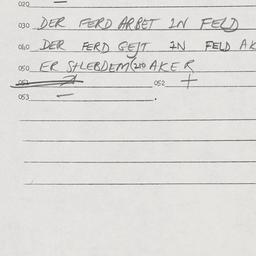 020 —
030 DER FERD ARBET IN FELD
040 DER FERD GEJT IN FELD AK
050 ER SHLEBDEM(210 AKER
051 052 +
053 — .